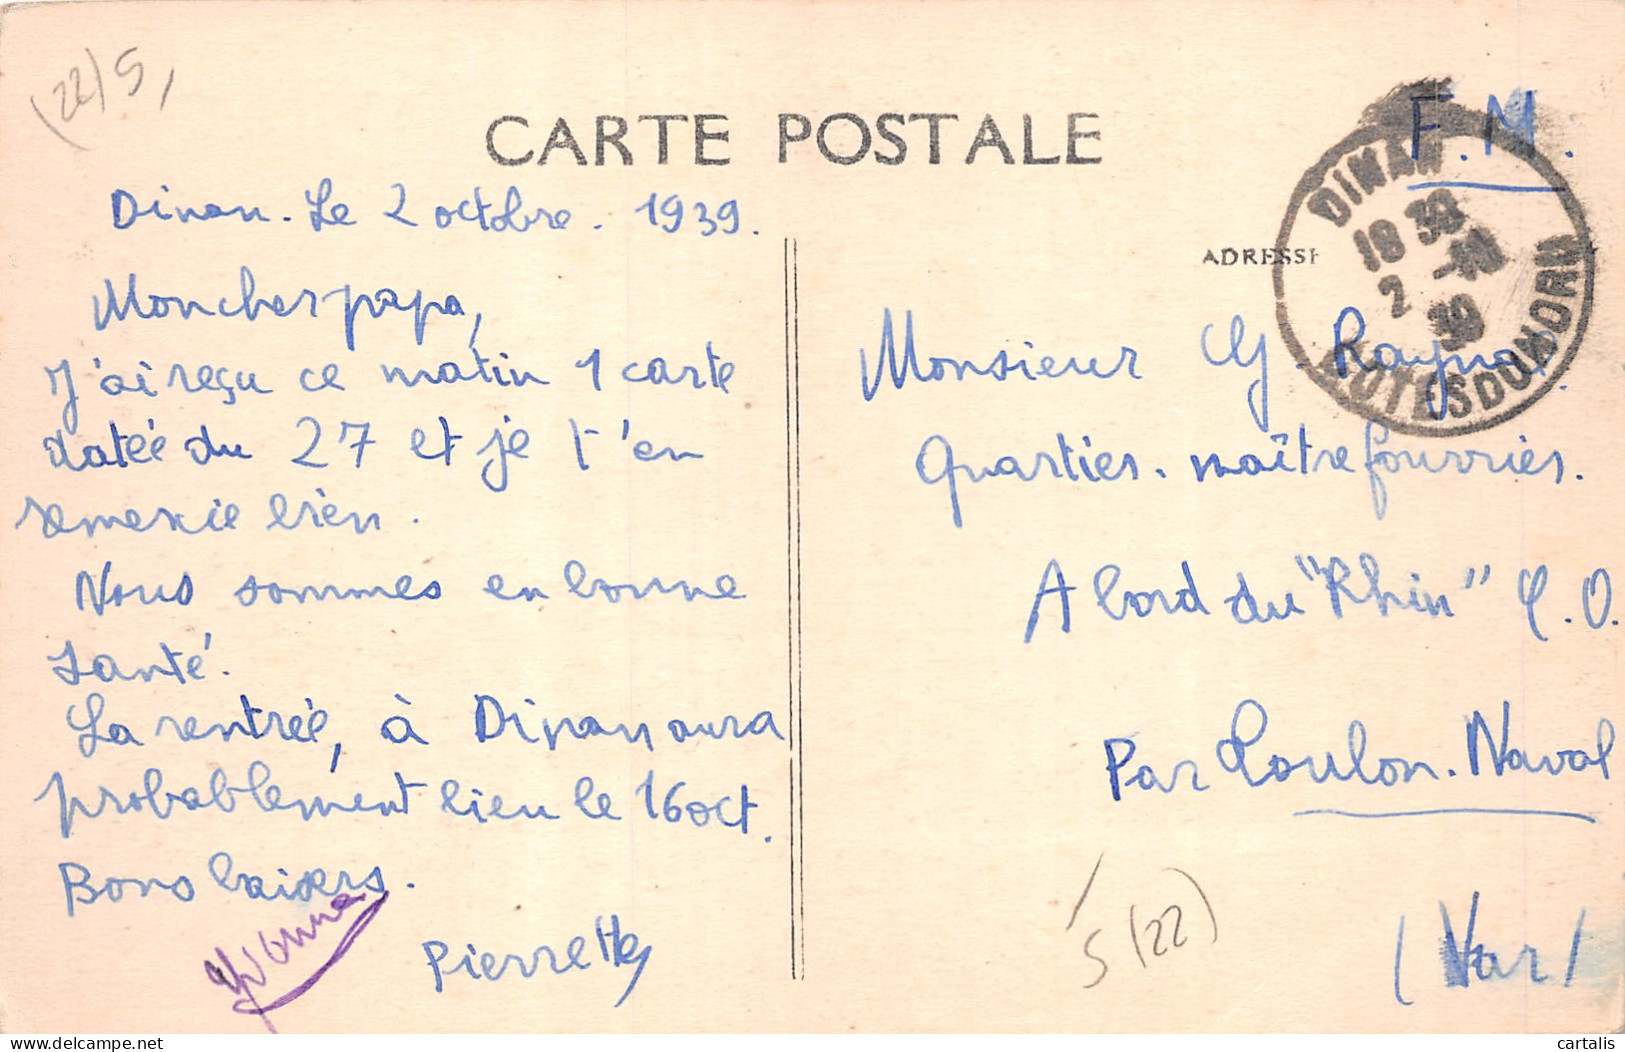 (22) 5
CARTE POSTALE
F. M.
Dinan. Le 2 octobre. 1939.
Mon cher papa,
J'ai reçu ce matin 1 carte
datée du 27 et je t'en
remercie bien.
Nous sommes en bonne
santé.
La rentrée, à Dinan aura
probablement lieu le 16 oct.
Bons baisers.
Yvonne
Pierrette
ADRESSE
DINAN
18 30
2 -10
39
COTES DU NORD
Monsieur Ch. Raynal.
Quartier-maître fourrier.
A bord du "Rhin" C.O.
Par Toulon. Naval
(Var)
5 (22)
cartalis